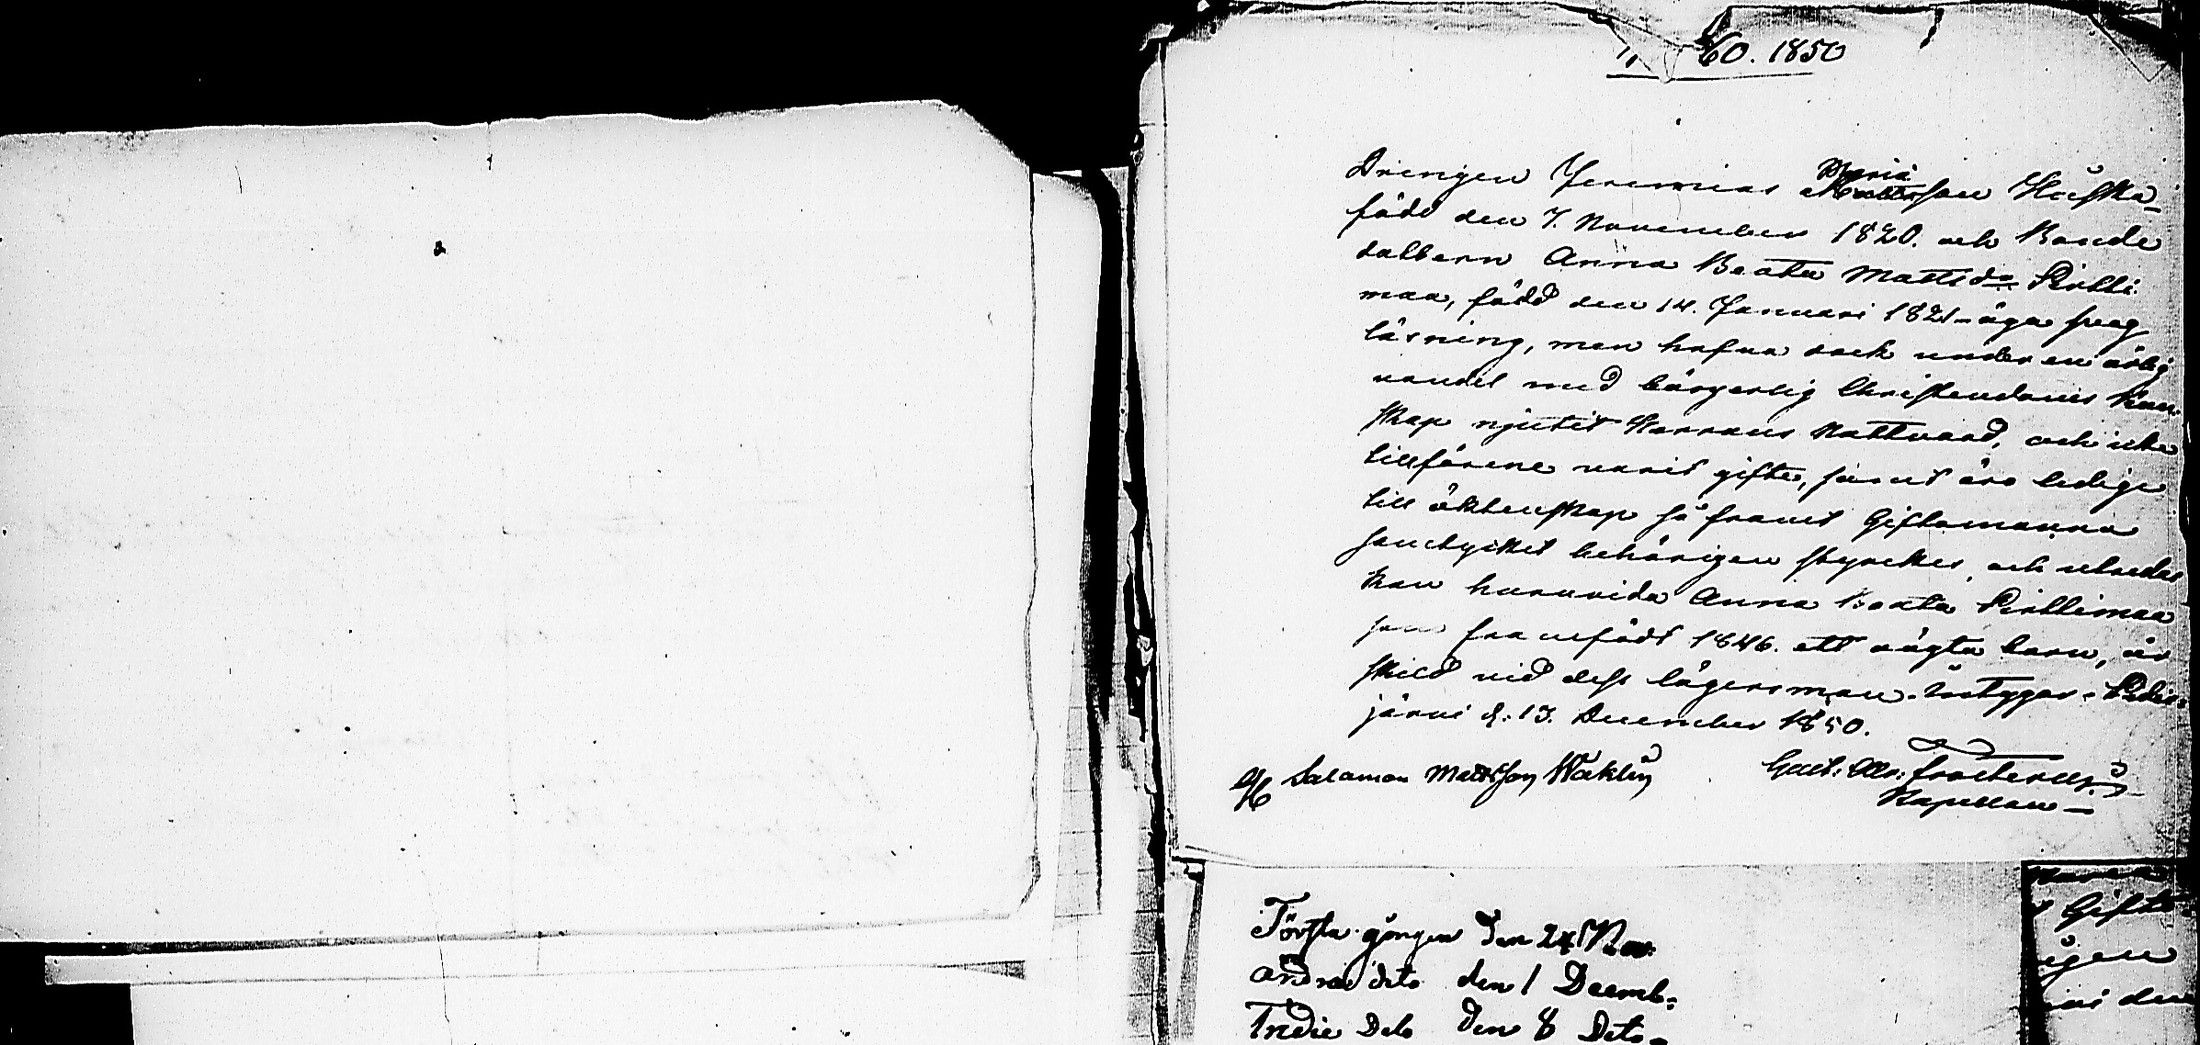 60. 1850
Drengen Jeremias Maria Mattsson Huska
född den 7. November 1820. och Bonde
dottern Anna Beata Mattsdr Pirtti
maa, född den 14. Januari 1821 äga svag
läsning, men hafva dock under en ärlig
vandel med börgerlig Christendoms kun
skap njutit Herrans Nattvard, och icke
tillförene varit gifte, samt äro ledige
till äktenskap så framt Giftomanna
samtycket behörigen styrckes, och utredas
kan huruvida Anna Beata Pirttimaa
som framfödt 1846. ett oägta barn, är
skild vid dess lägersman. Intygar. Pidis-
järvi d. 13. December 1850.
Salamon Mattsson Waklin
Gust: Alb: Frosterus
Kapellan
Första gången den 24 Nov:
Andra dito den 1 Decemb:
Tredie Dito den 8 Dito
Gifto
igen
den